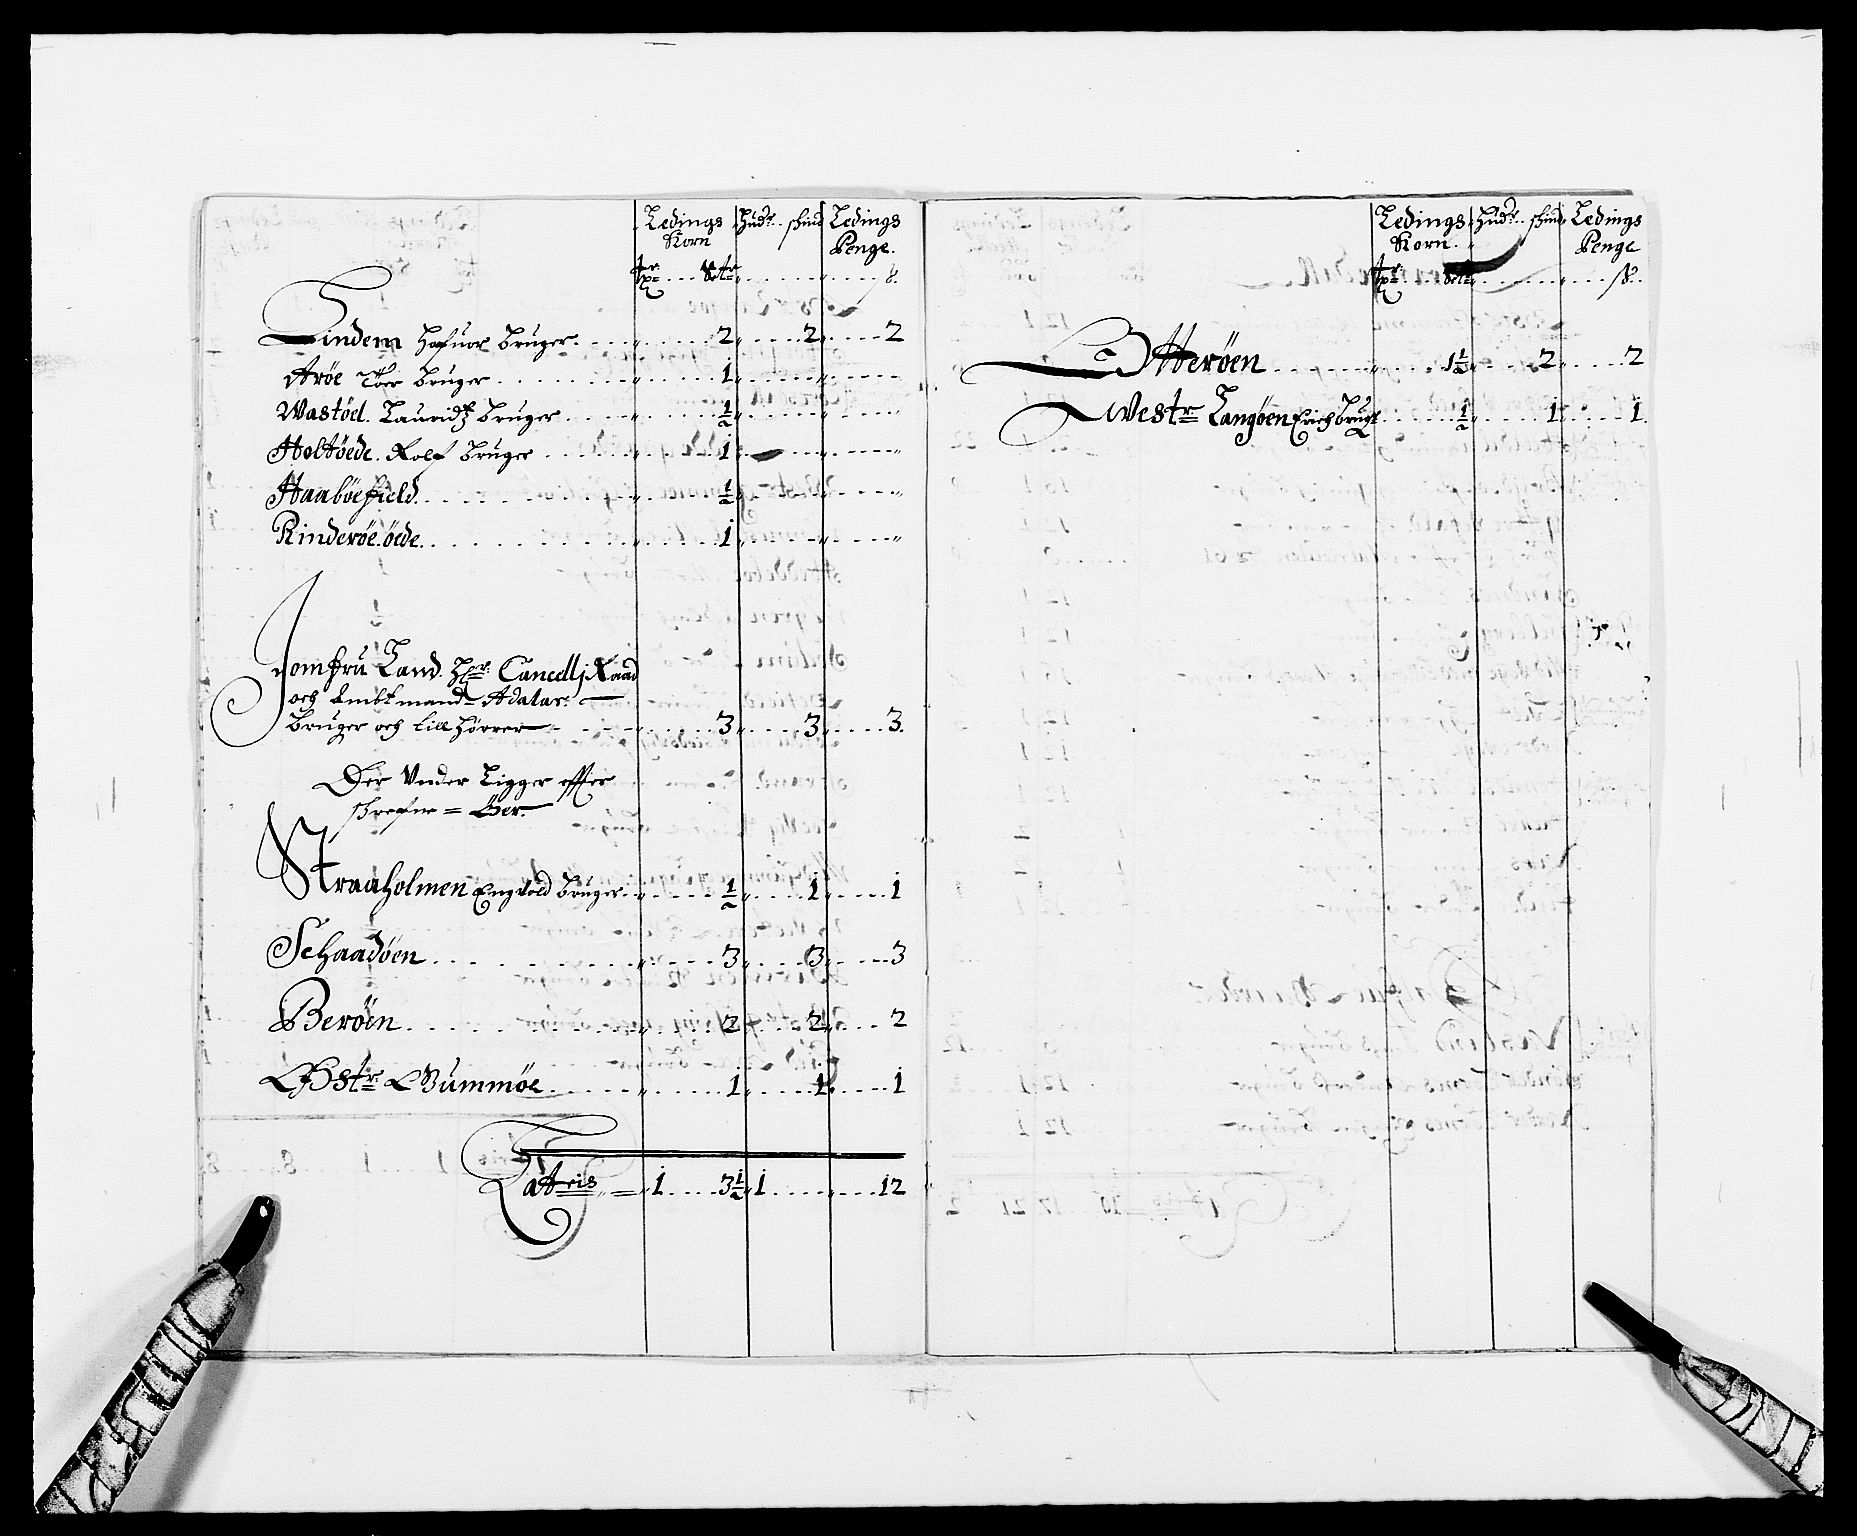 Ledings Hudr. skind Ledings
Korn Penge.
tr Setr ß.
Lindem Hafuor bruger 2 2 2
Arøe Toer bruger 1 " "
Wastöd. Lauridtz bruger ½ " "
Holtöede. Rolf bruger 1 " "
Haabøefield ½ " "
Rinderøe.öede. 1 " "
Jomfru Land. Hr: Cancellj Raad
och Ambtmand Adalar:
bruger och till hörrer 3 3 3.
Der Under Ligger effter
schrefne = Öer.
Straaholmen Engvold bruger ½ 1 1
Schaadöen 3 3 3
Beröen 2 2 2
Østr Gummøe 1 1 1
Latris = 1 3½ 1 " 12
Ledings Hudr. skind Ledings
Korn. Penge
tr Setr ß.
Otteröen 1½ 2 2
Westr Langöen Erich brugr ½ 1 1.